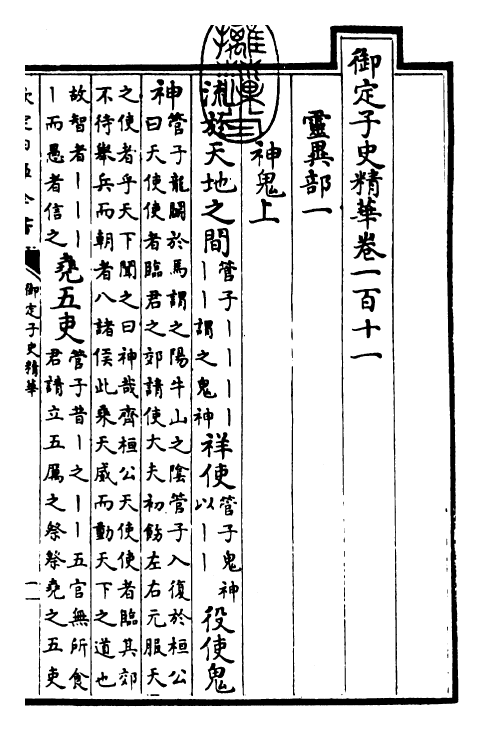 御定子史精華卷一百十一
靈異部一
神鬼上
流於天地之間管子丨丨丨丨丨丨謂之鬼神祥使管子鬼神以丨丨役使鬼
神管子龍鬭於馬謂之陽牛山之陰管子入復於桓公
曰天使使者臨君之郊請使大夫初飭左右元服天
之使者乎天下聞之曰神哉齊桓公天使使者臨其郊
不待舉兵而朝者八諸侯此乘天威而動天下之道也
故智者丨丨丨丨而愚者信之堯五吏管子昔丨之丨丨五官無所食
君請立五厲之祭祭堯之五吏
御定子史精華
一